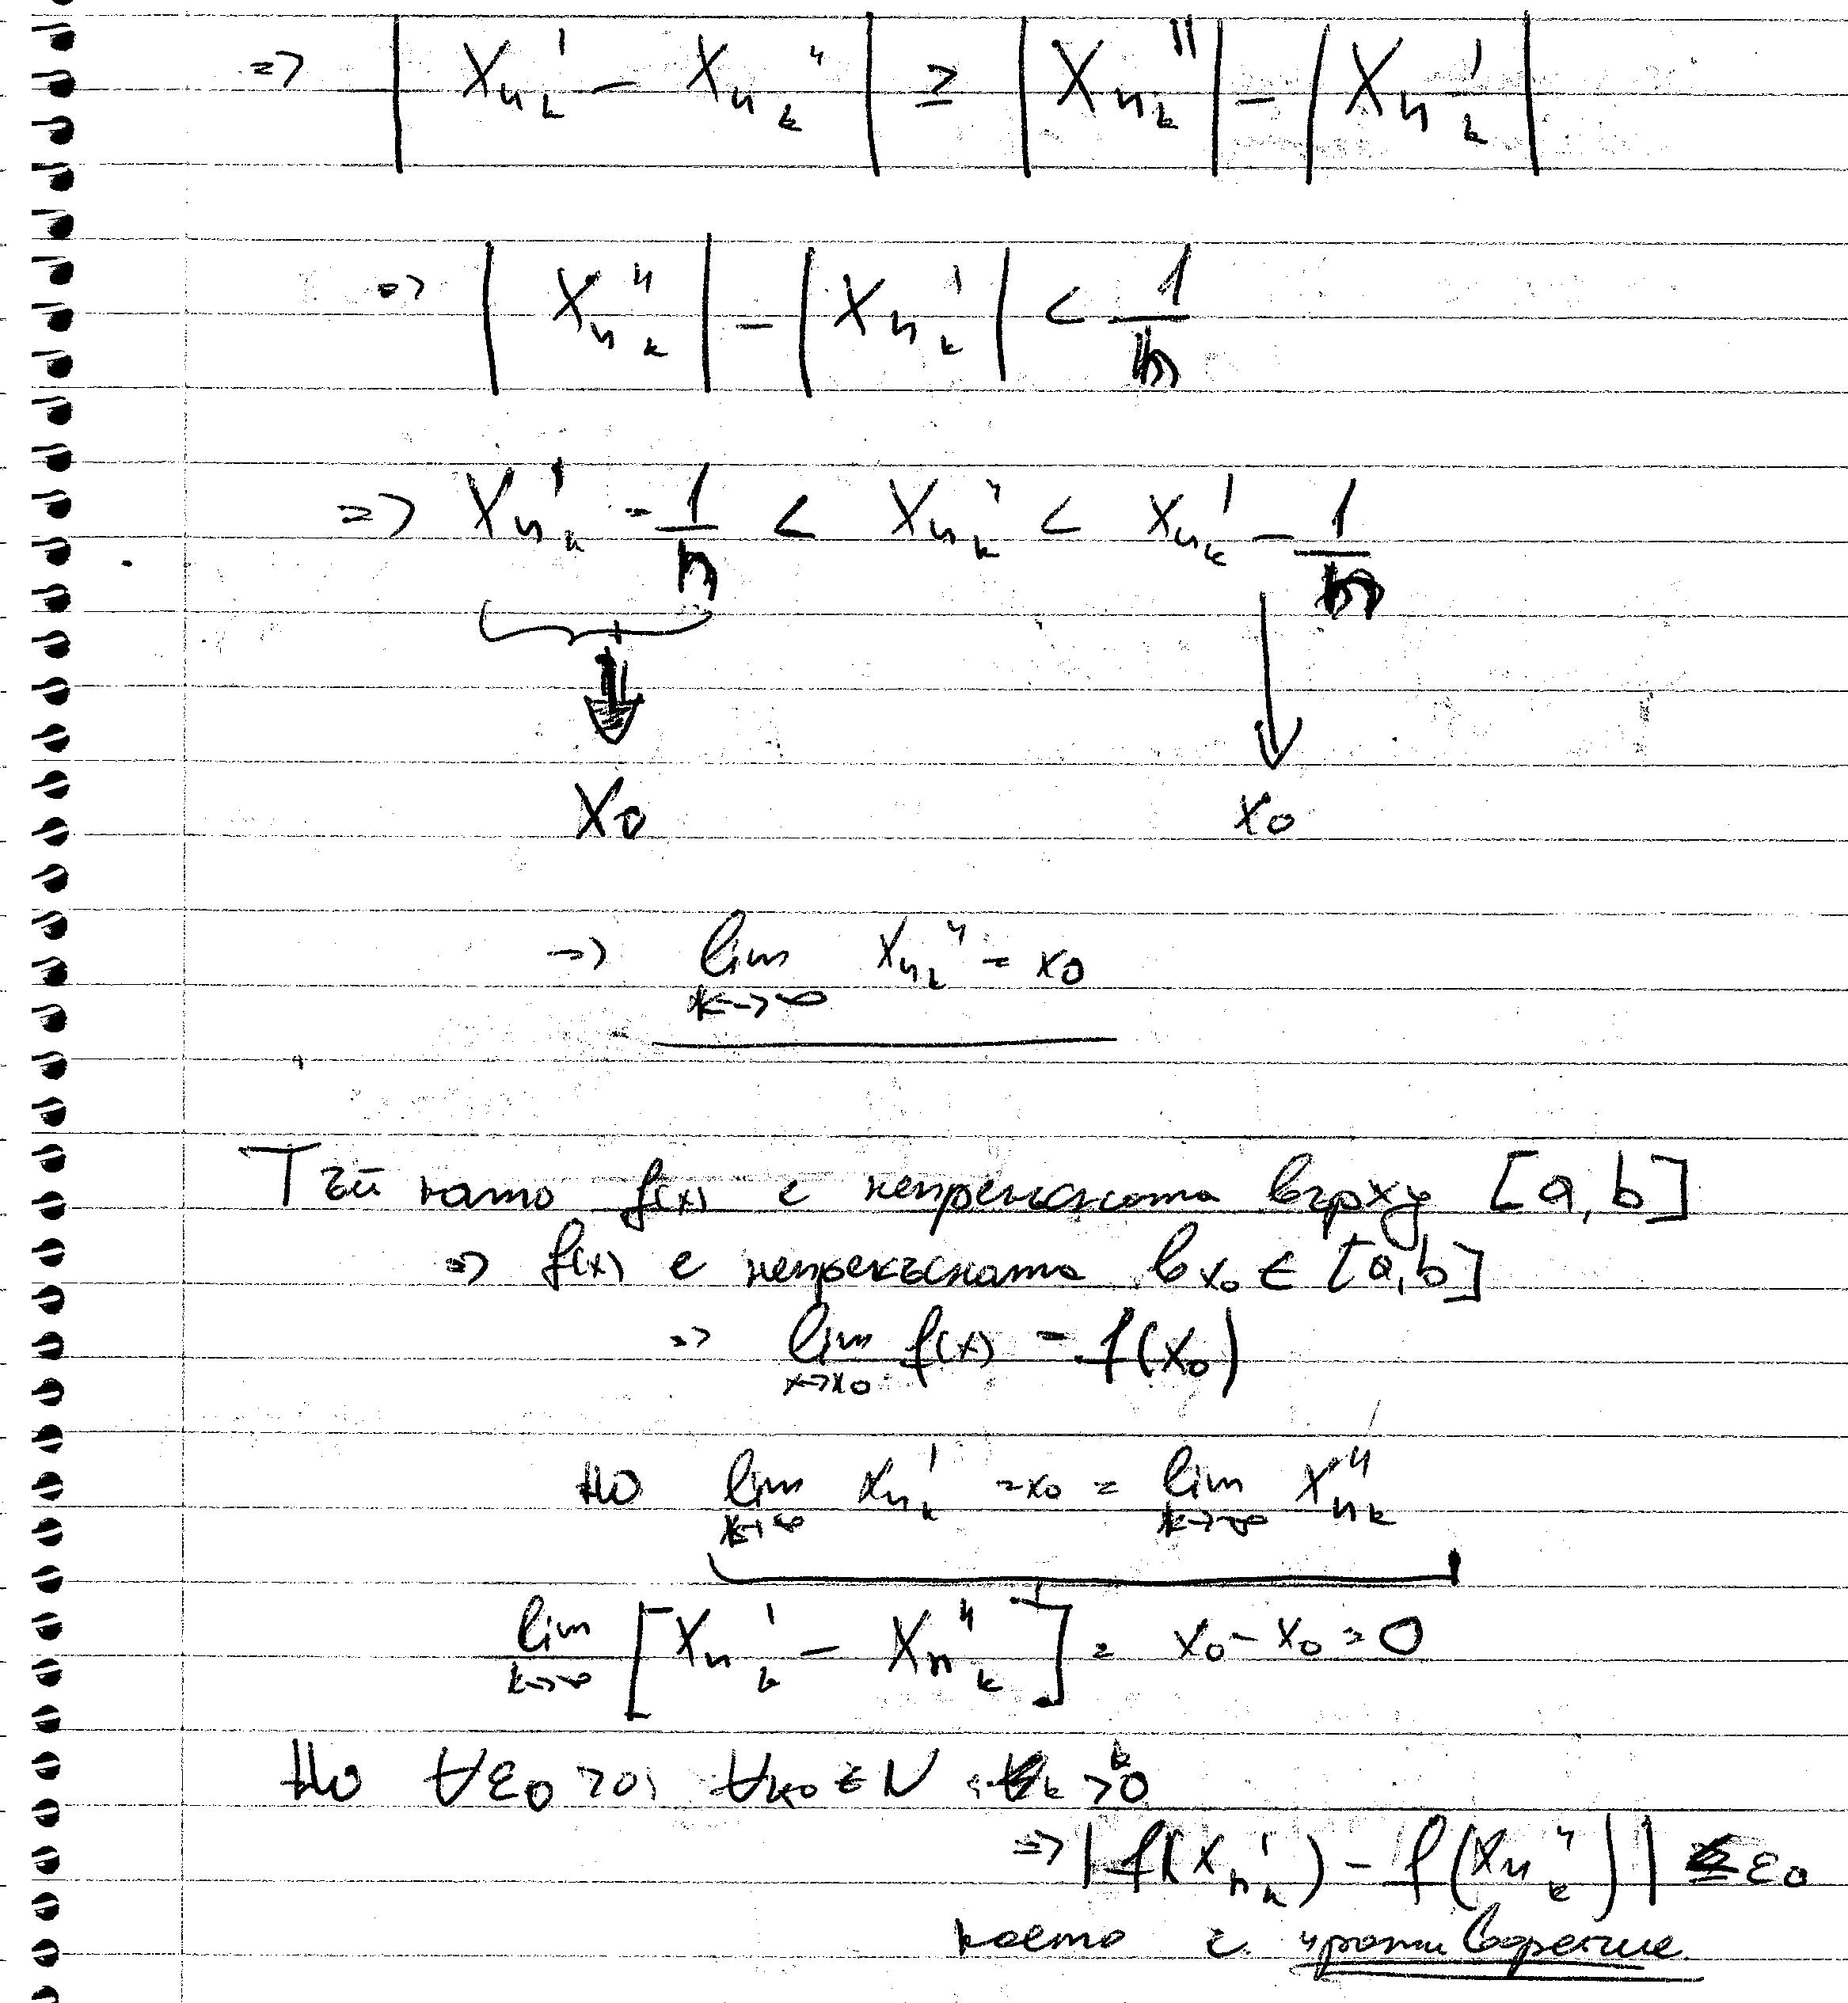 => | Xₙₖ' - Xₙₖ" | ≥ | Xₙₖ" | - | Xₙₖ' |
=> | Xₙₖ" | - | Xₙₖ' | < 1/n
=> Xₙₖ' - 1/n < Xₙₖ" < Xₙₖ' - 1/n
X₀ X₀
=> lim k→∞ Xₙₖ" = X₀
Тъй като f(x) е непрекъсната върху [a, b]
=> f(x) е непрекъсната в x₀ ∈ [a, b]
=> lim x→x₀ f(x) = f(x₀)
Но lim k→∞ Xₙₖ' = x₀ = lim k→∞ Xₙₖ"
lim k→∞ [Xₙₖ' - Xₙₖ"] = x₀ - x₀ = 0
Но ∀ε₀ > 0, ∀k₀ ∈ N k > k₀
=> | f(Xₙₖ') - f(Xₙₖ") | ≤ ε₀
което е противоречие